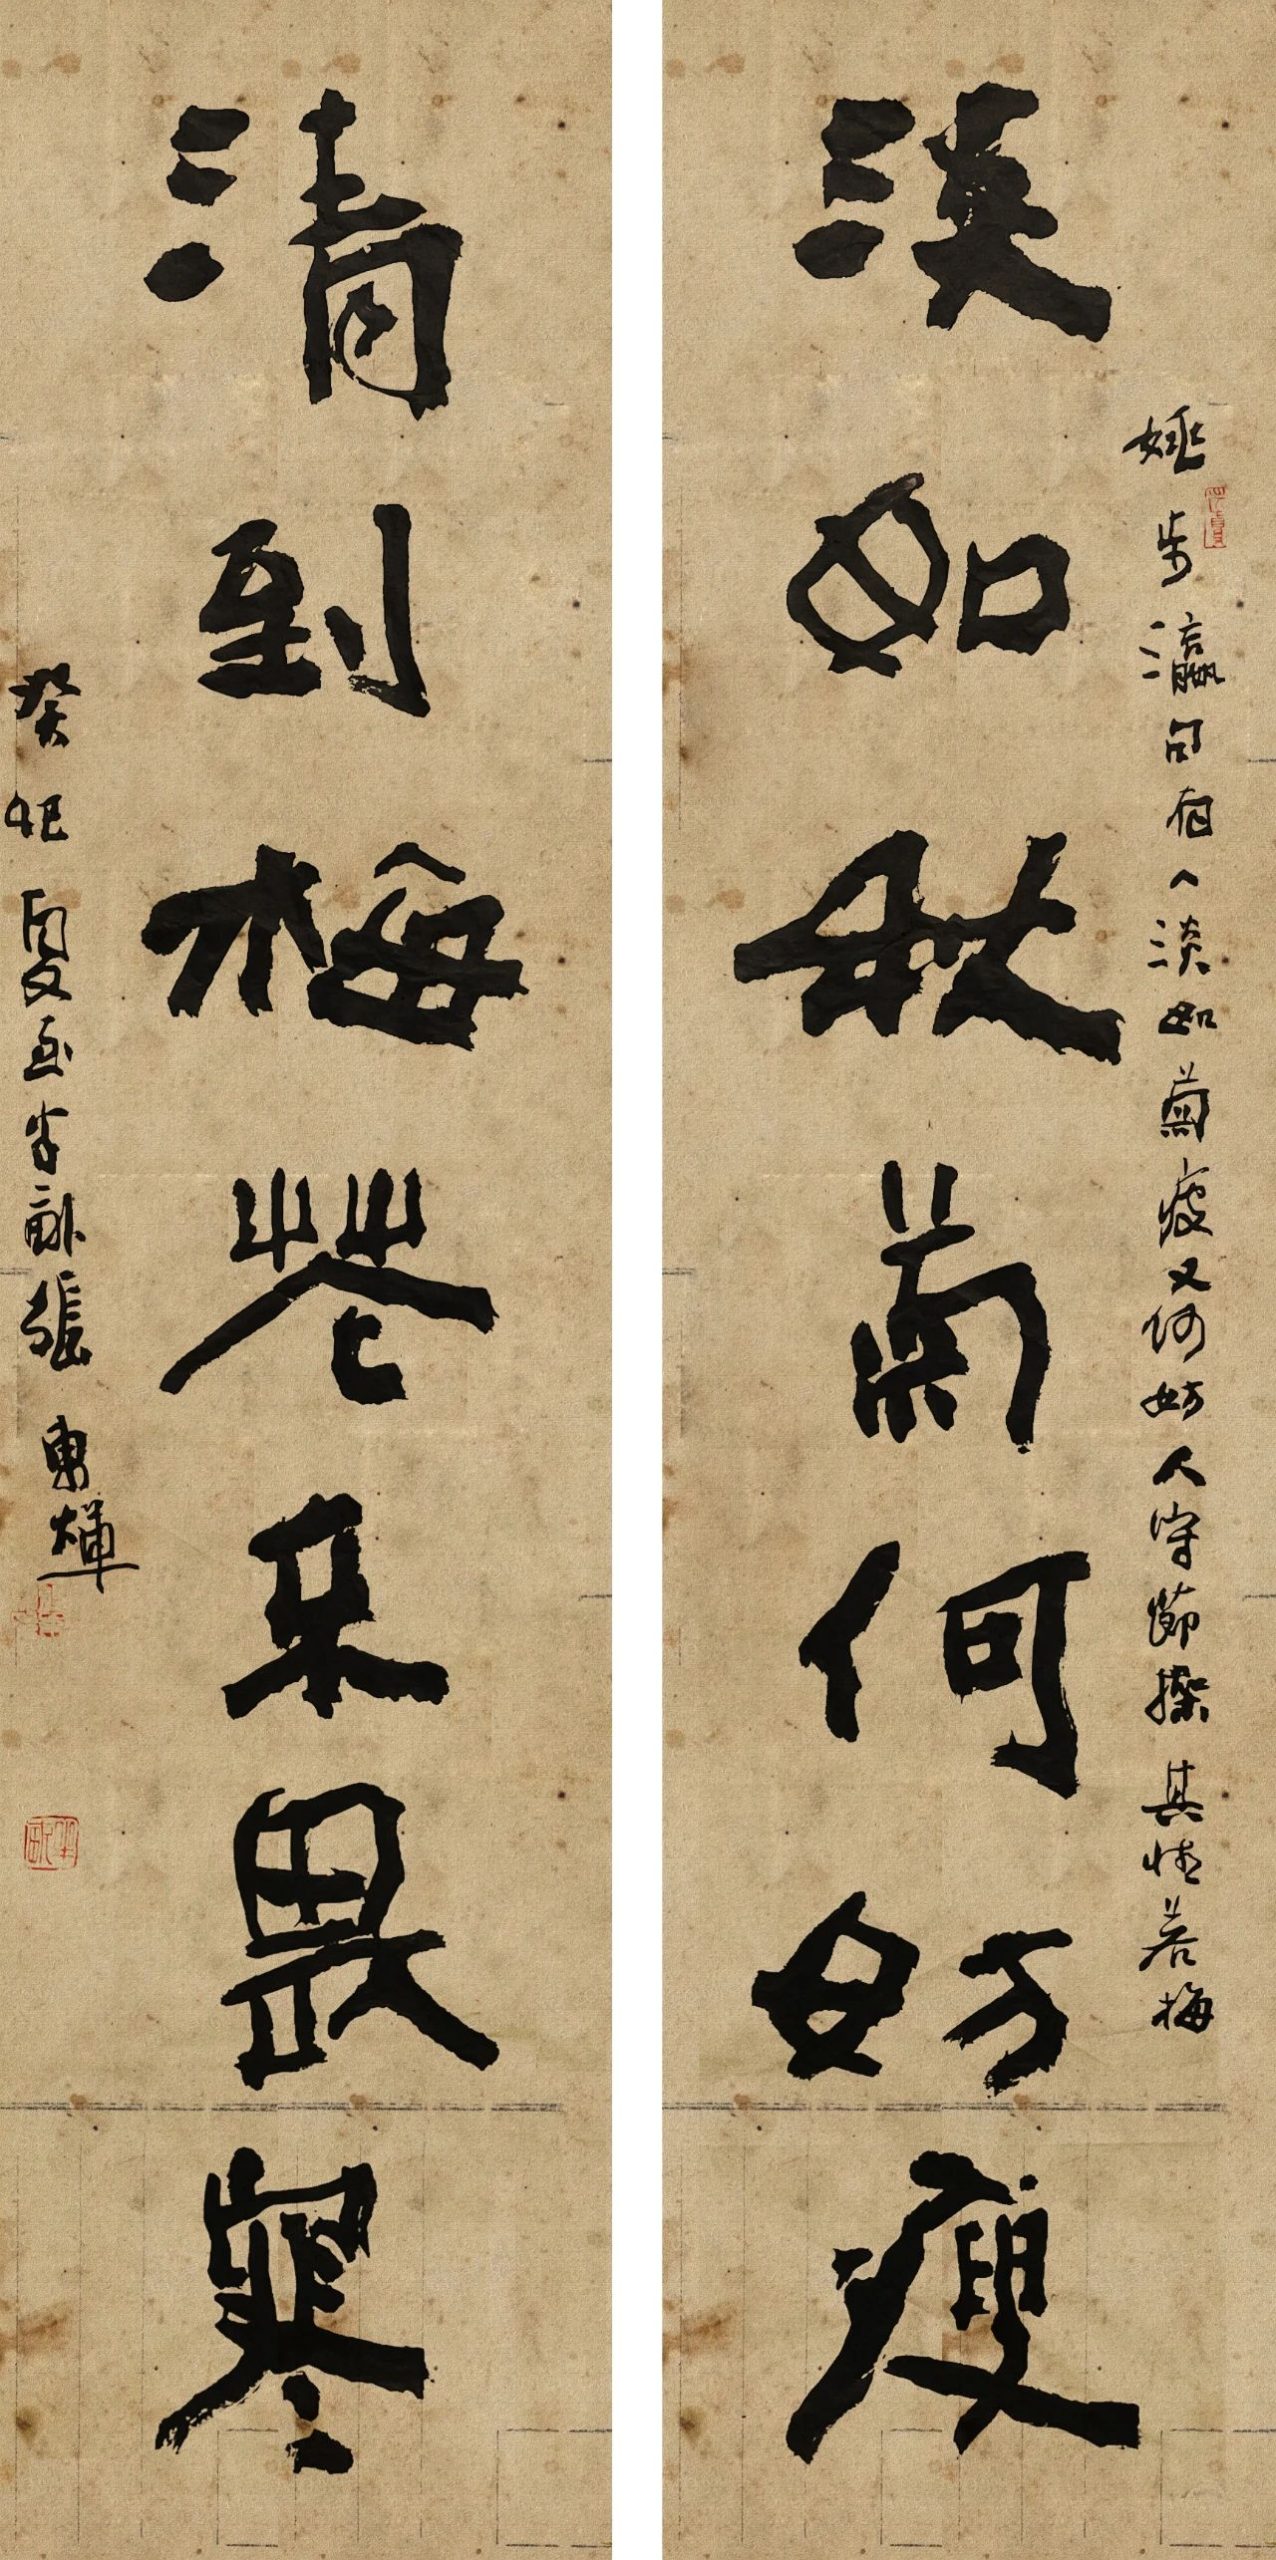 淡如秋菊何妨瘦
姚步瀛句有人淡如菊瘦又何妨人守節操其情若梅
清到梅花不畏寒
癸巳夏至半畝張東輝